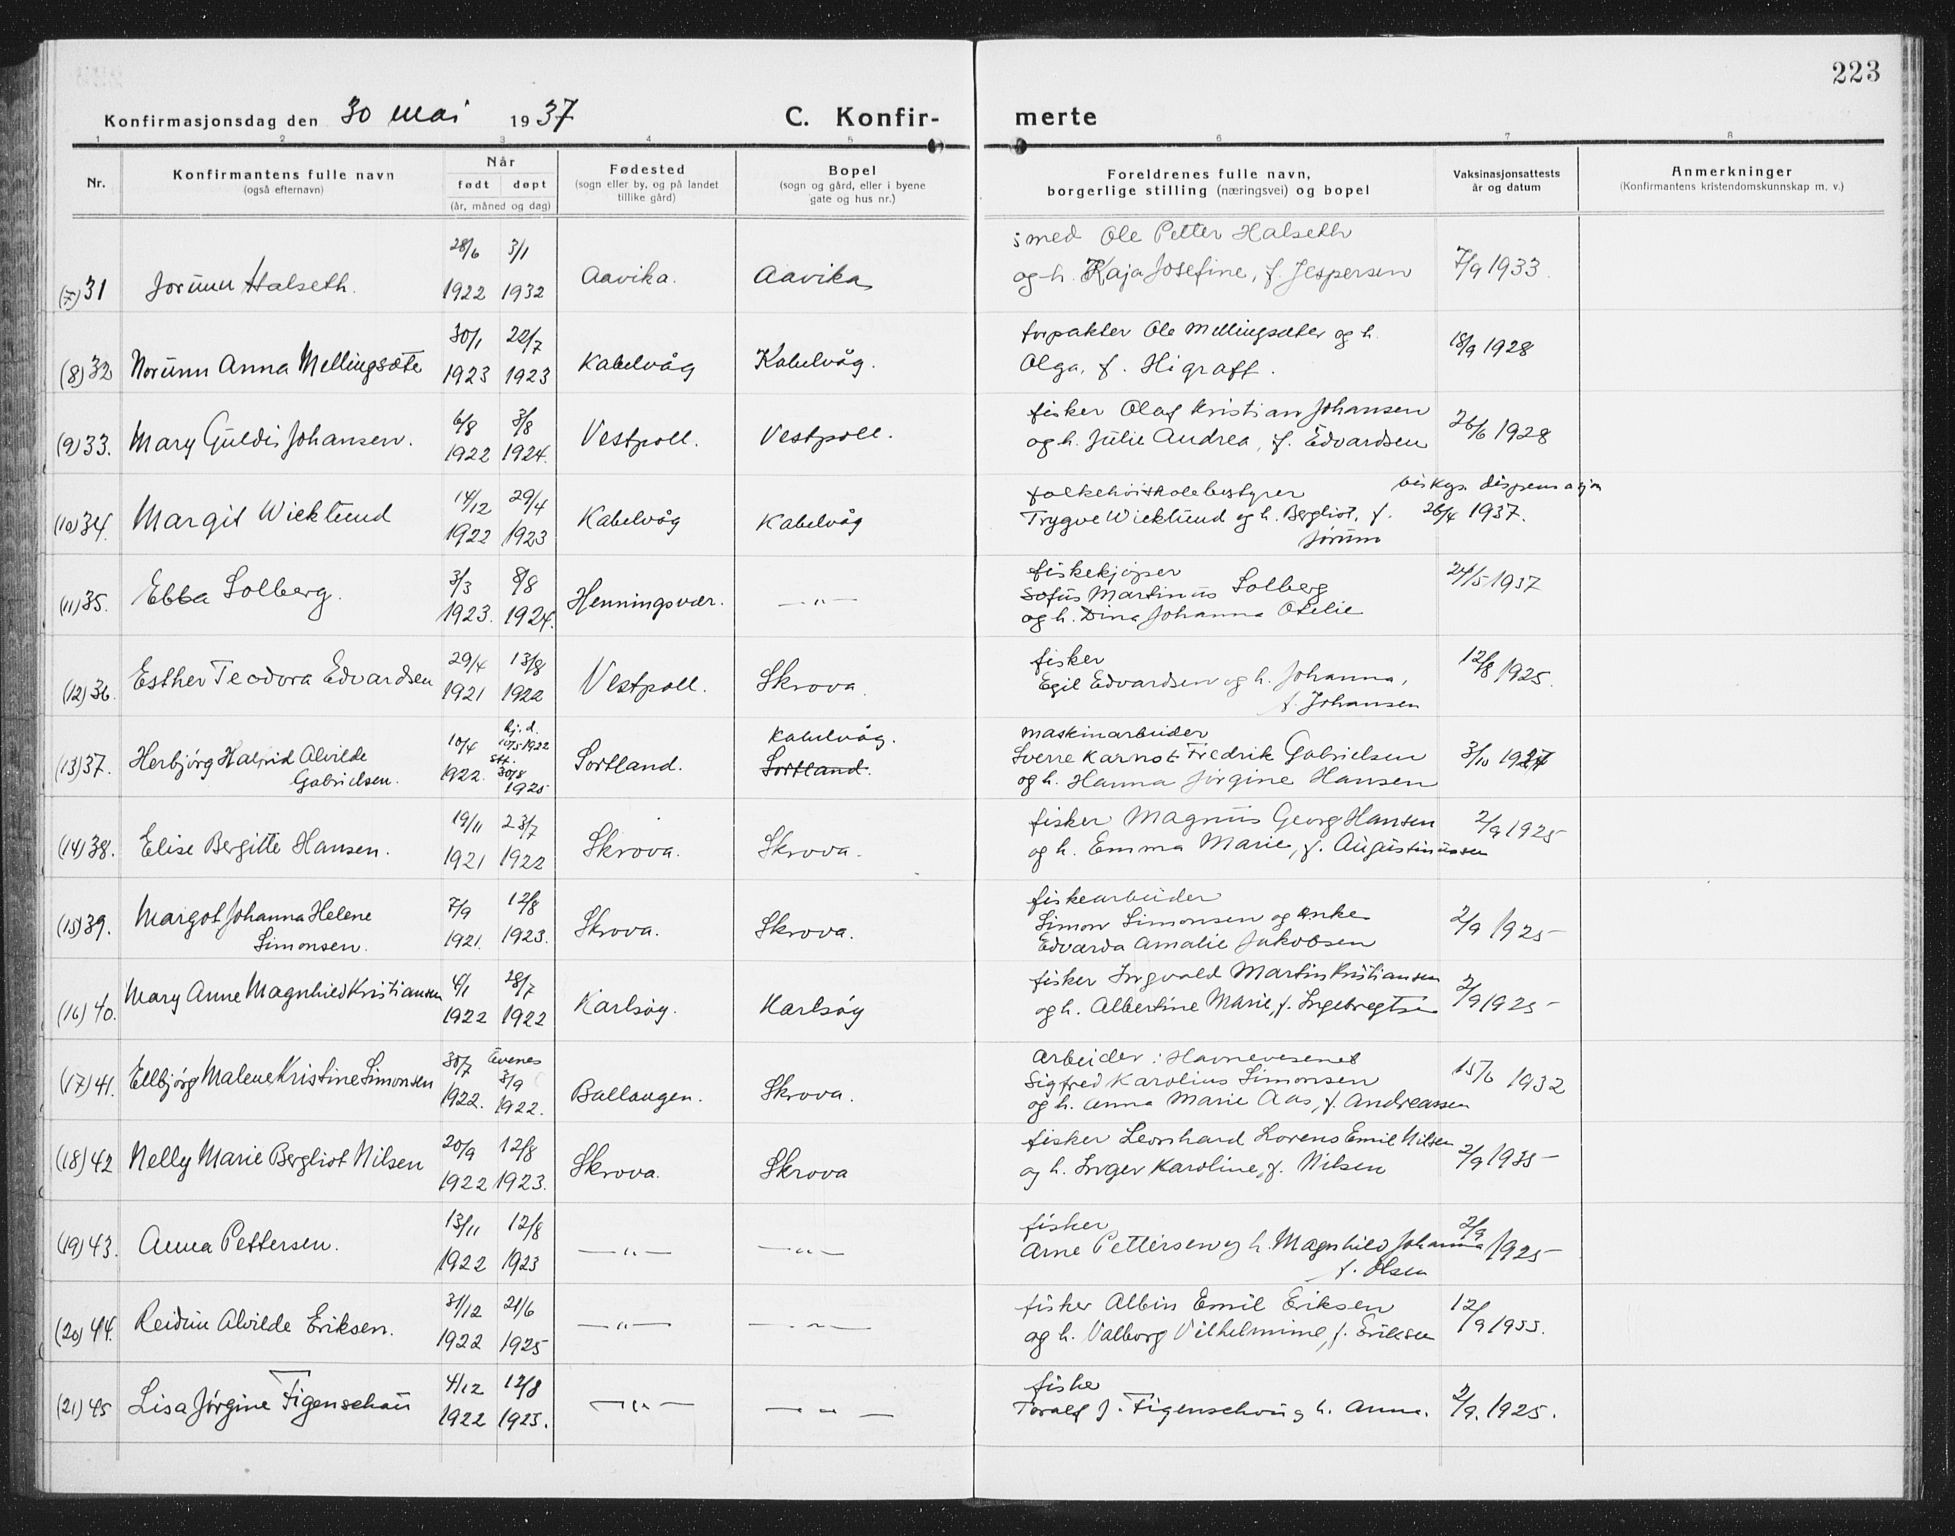 223
Konfirmasjonsdag den 30 mai 1937 C. Konfir- merte
1 2 3 4 5 6 7 8
Nr.
Konfirmantens fulle navn
(også efternavn)
Når
født døpt
(år, måned og dag)
Fødested
(sogn eller by, og på landet
tillike gård)
Bopel
(sogn og gård, eller i byene
gate og hus nr.)
Foreldrenes fulle navn,
borgerlige stilling (næringsvei) og bopel
Vaksinasjonsattests
år og datum
Anmerkninger
(Konfirmantens kristendomskunnskap m. v.)
28/6 3/1 smed Ole Petter Halseth
(7) 31 Jorunn Halseth. 1922 1932 Aavika. Aavika og h. Kaja Josefine, f. Jespersen 7/9 1933.
30/1 22/7 forpakter Ole Mellingsæter og h. 18/9 1928
(8) 32 Norunn Anna Mellingsæte 1923 1923 Kabelvåg Kabelvåg. Olga, f. Higraff.
6/8 3/8 fisker Olaf Kristian Johansen
(9) 33. Mary Guldis Johansen. 1922 1924. Vestpoll. Vestpoll. og h. Julie Andrea, f. Edvardsen 26/6 1928
14/12 29/4 folkehøiskolebestyrer biskops dispensasjon
(10) 34. Margit Wicklund 1922 1923 Kabelvåg Kabelvåg Trygve Wicklund og h. Bergliot, f. 26/4 1937.
Jørum
3/3 8/8 fiskekjøper
(11) 35. Ebba Solberg. 1923. 1924. Henningsvær. —"— Sofus Martinus Solberg 24/5 1937
og h. Dina Johanna Otelie
29/4 13/8 fisker
(12) 36. Esther Teodora Edvardsen 1921 1922 Vestpoll. Skrova. Egil Edvardsen og h. Johanna, 12/8 1925.
f. Johansen
10/4 hj. d. 10/5 1922 Kabelvåg. maskinarbeider
(13) 37. Herbjørg Halfrid Alvilde 1922. stf. 30/8 1925 Sortland. Sortland. Sverre Karnot Fredrik Gabrielsen 3/10 1927
Gabrielsen. og h. Hanna Jørgine Hansen
19/11 23/7 fisker Magnus Georg Hansen 2/9 1925
(14) 38. Elise Bergitte Hansen. 1921 1922 Skrova. Skrova. og h. Emma Marie, f. Augustinussen
7/9 12/8 fiskearbeider
(15) 39. Margot Johanna Helene 1921. 1923. Skrova. Skrova. Simon Simonsen og Anke 2/9 1925
Simonsen. Edvarda Amalie Jakobsen
4/1 28/7 fisker Ingvald Martin Kristiansen
(16) 40. Mary Anne Magnhild Kristiansen 1922 1922 Karlsøy. Karlsøy og h. Albertine Marie, f. Ingebregtsen 2/9 1925
30/7 Evenes 3/9 arbeider i Havnevesenet
(17) 41. Ellbjørg Malene Kristine Simonsen 1922. 1922. Ballangen. Skrova. Sigfred Karolius Simonsen 15/6 1932
og h. Anna Marie Aas, f. Andreassen
20/9 12/8 fisker Leonhard Lorens Emil Nilsen
(18) 42 Nelly Marie Bergliot Nilsen 1922 1923. Skrova. Skrova og h. Inger Karoline, f. Nilsen 2/9 1935
13/11 12/8 fisker
(19) 43. Anna Pettersen. 1922 1923 —"— —"— Arne Pettersen og h. Magnhild Johanna 2/9 1925
f. Olsen
31/12 21/6 fisker Albin Emil Eriksen
(20) 44. Reidun Alvilde Eriksen. 1922 1925 —"— —"— og h. Valborg Vilhelmine, f. Eriksen 12/9 1933.
4/12 12/8 fisker
(21) 45 Lisa Jørgine Figenschau 1922 1923. —"— —"— Toralf J. Figenschou og h. Anna. 2/9. 1925.